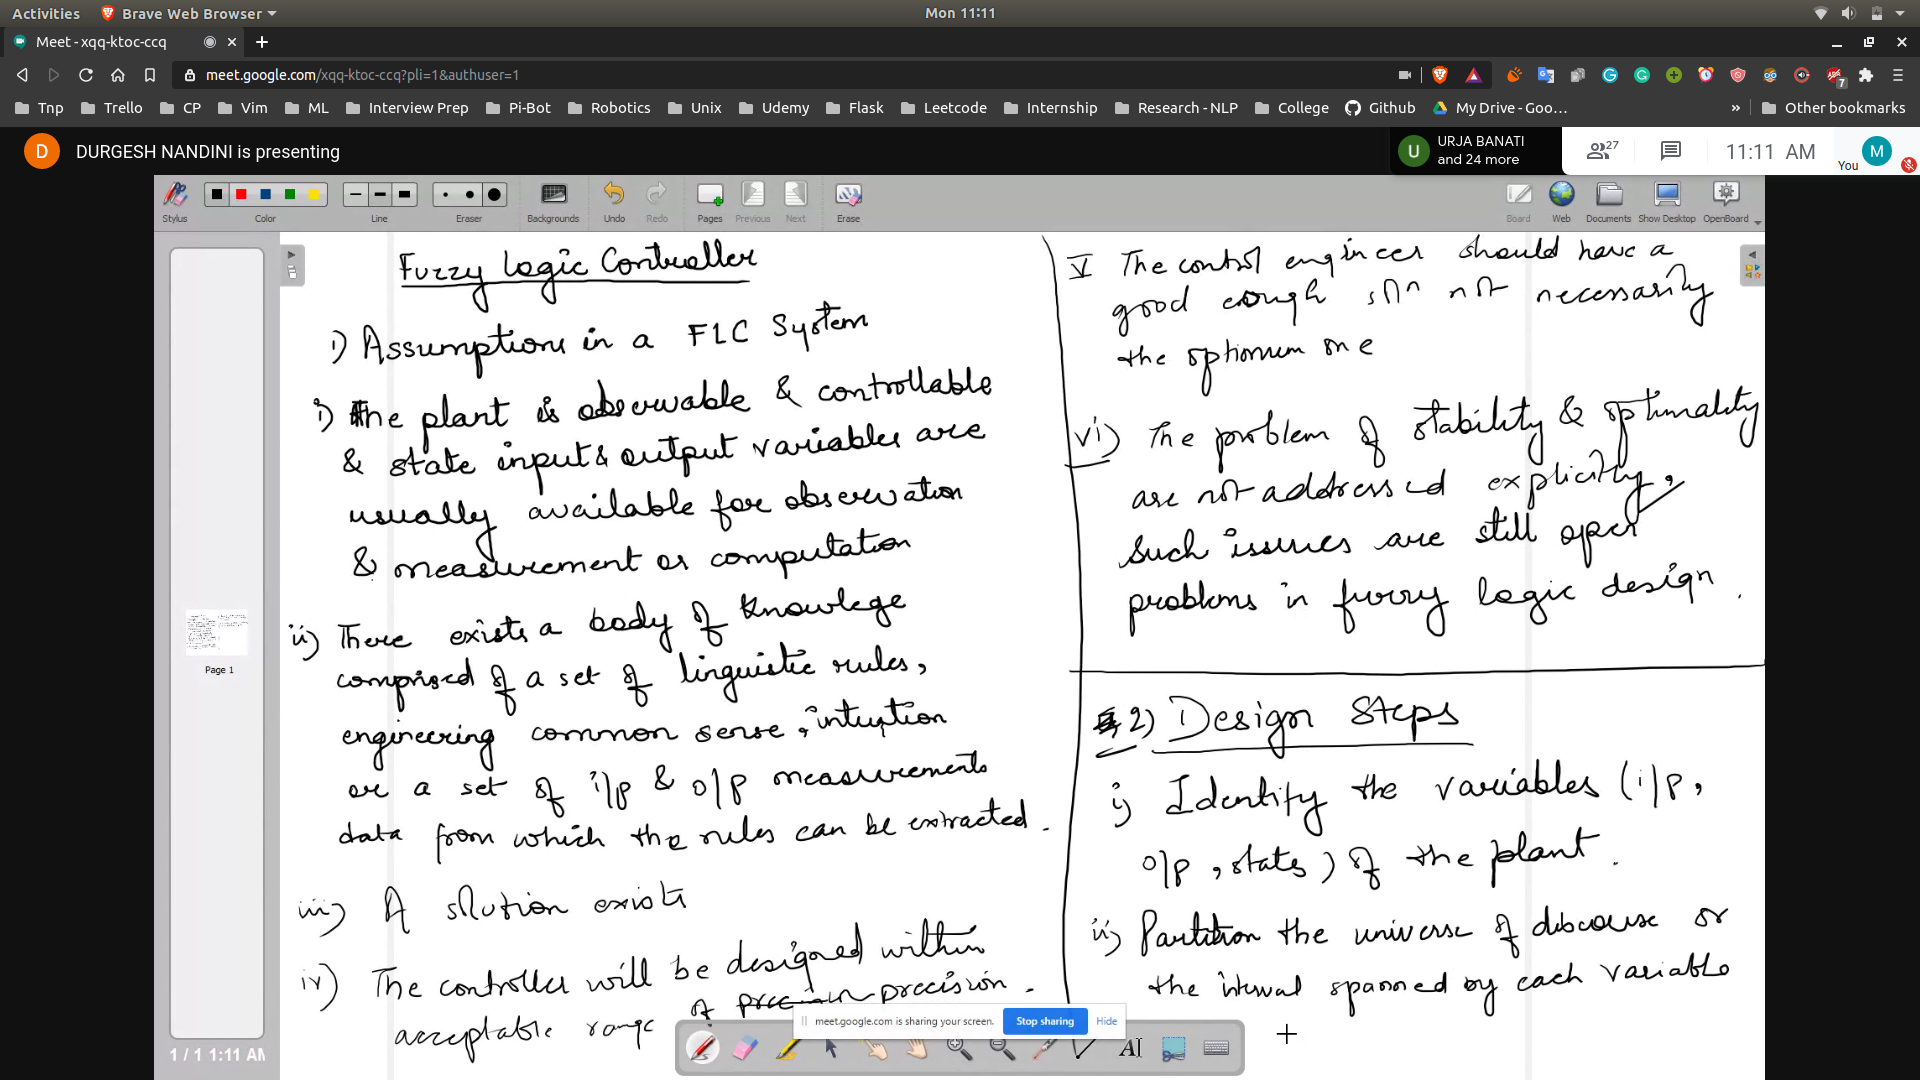 Activities Brave Web Browser Mon 11:11
Meet - xqq-ktoc-ccq
meet.google.com/xqq-ktoc-ccq?pli=1&authuser=1
Tnp Trello CP Vim ML Interview Prep Pi-Bot Robotics Unix Udemy Flask Leetcode Internship Research - NLP College Github My Drive - Goo… » Other bookmarks
D DURGESH NANDINI is presenting
U URJA BANATI and 24 more
27 11:11 AM You M
Stylus Color Line Eraser Backgrounds Undo Redo Pages Previous Next Erase Board Web Documents Show Desktop OpenBoard
Page 1
1 / 1 1:11 AM
Fuzzy Logic Controller
1) Assumptions in a FLC System
i) The plant is observable & controllable
& state input & output variables are
usually available for observation
& measurement or computation
ii) There exists a body of knowlege
comprised of a set of linguistic rules,
engineering common sense, intuition
or a set of i/p & o/p measurements
data from which the rules can be extracted.
iii) A solution exists
iv) The controller will be designed within
acceptable range of precision.
V The control engineer should have a
good enough soln not necessarily
the optimum one
vi) The problem of stability & optimality
are not addressed explicitly,
Such issues are still open
problems in fuzzy logic design.
2) Design Steps
i) Identify the variables (i/p,
o/p, states) of the plant.
ii) Partition the universe of discourse or
the interval spanned by each variable
meet.google.com is sharing your screen. Stop sharing Hide